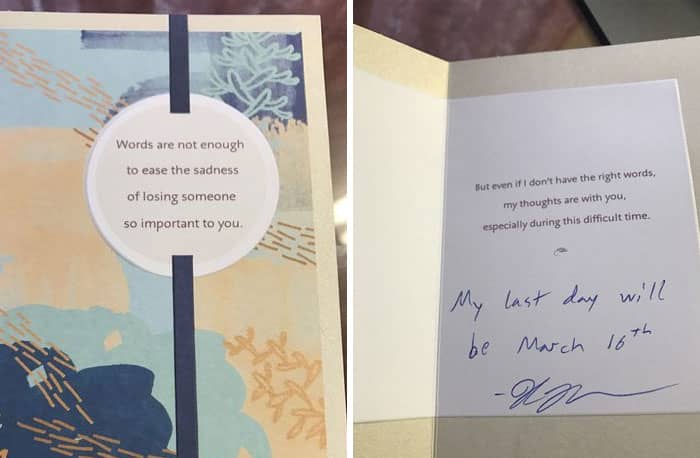 Words are not enough
to ease the sadness
of losing someone
so important to you.
But even if I don't have the right words,
my thoughts are with you,
especially during this difficult time.
My last day will
be March 16th